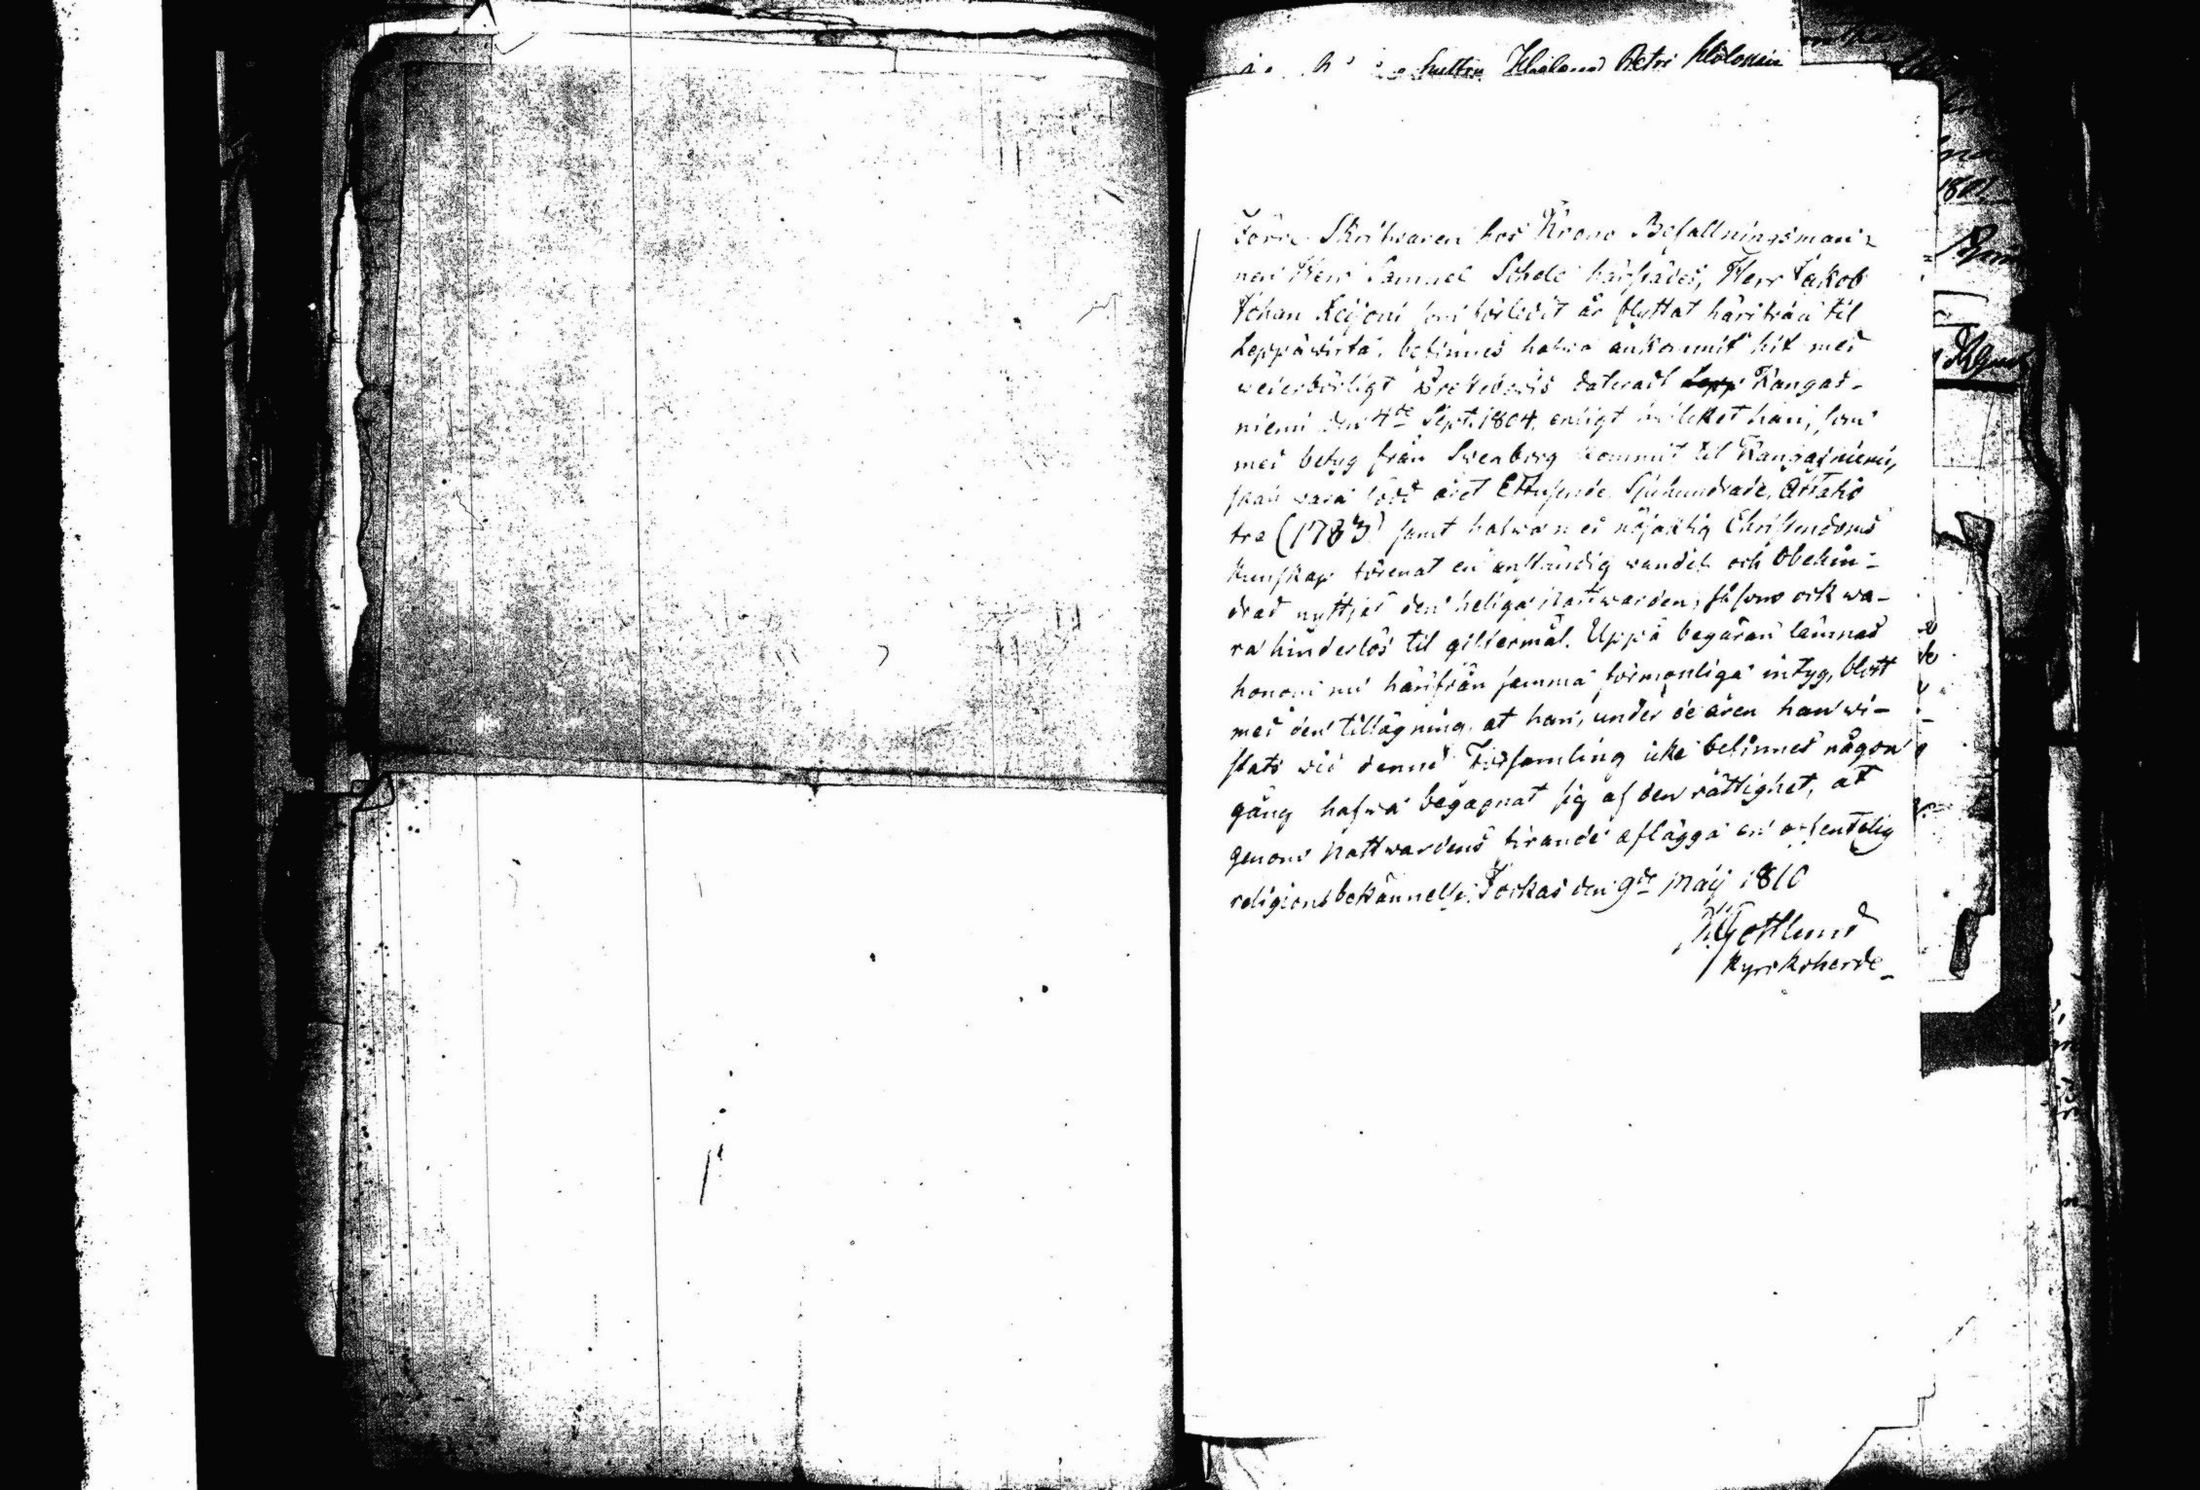 hustru Helena Petri
Förre Skrifvaren hos Krono Befallningsman-
nen Herr Samuel Schele härstädes, Herr Jakob
Johan Keijoni som förledit år flyttat härifrån til
Leppäwirta, befinnes hafva ankommit hit med
wederbörligt Prestbewis dateradt Kangas-
niemi den 4de Sept. 1804, enligt hvilket han, som
med betyg från Sweaborg kommit til Kangasniemi,
skal wara född året Ettusende Sjuhundrade Åttatio
tre (1783) samt hafwa en nöjaktig Christendoms
kunskap förenat en anständig wandel och Obehin-
drad nyttjat den heliga Nattwarden, såsom ock wa-
ra hinderlös til giftermål. Uppå begäran lämnas
honom nu härifrån samma förmonliga intyg, blott
med den tillägning, at han, under de åren han wi-
stats wid denne Församling icke befinnes någon
gång hafwa begagnat sig af den rättighet, at
genom Nattwardens firande aflägga en offentelig
religions bekännelse. Jockas den 9de Maij 1810
Gottlund
Kyrkoherde